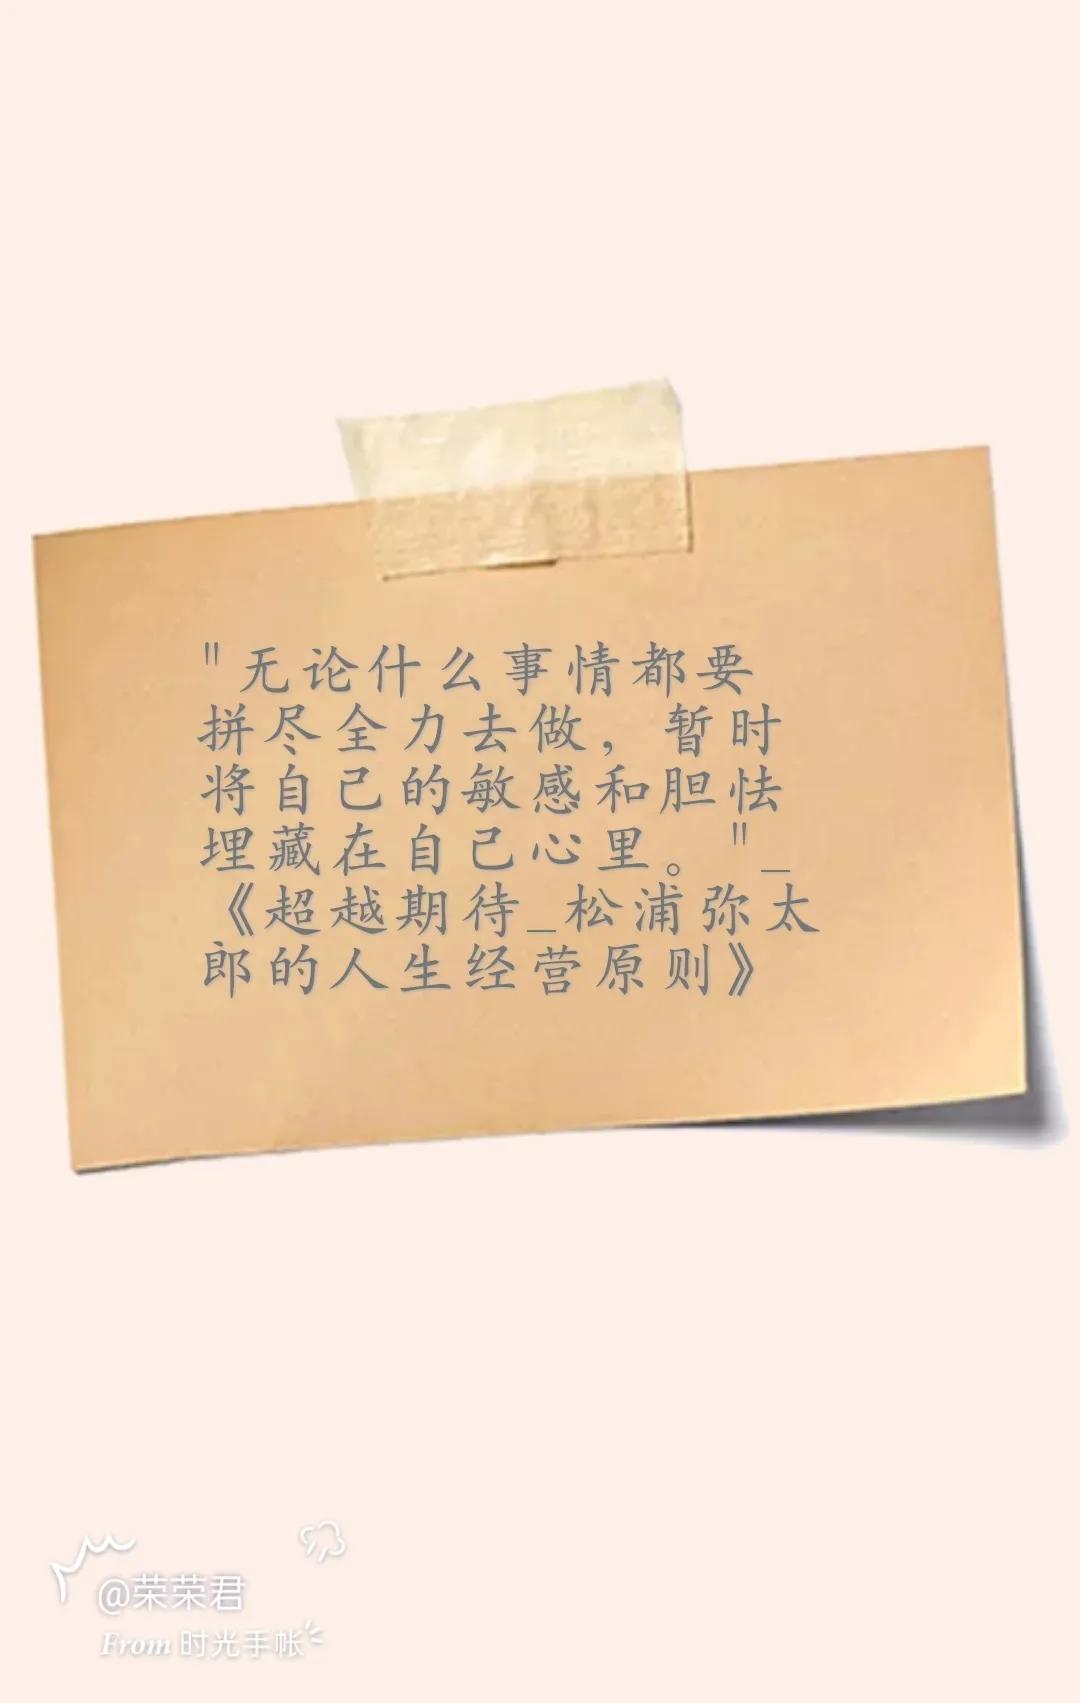 "无论什么事情都要
拼尽全力去做，暂时
将自己的敏感和胆怯
埋藏在自己心里。"_
《超越期待_松浦弥太
郎的人生经营原则》
@荣荣君
From 时光手帐